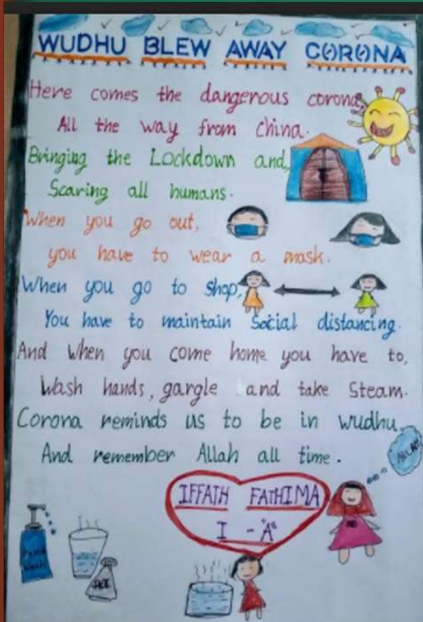 WUDHU BLEW AWAY CORONA
Here comes the dangerous corona,
All the way from China.
Bringing the Lockdown and,
Scaring all humans.
When you go out,
you have to wear a mask.
When you go to Shop,
You have to maintain Social distancing.
And when you come home you have to,
Wash hands, gargle and take Steam.
Corona reminds us to be in wudhu,
And remember Allah all time.
ALLAH
IFFATH FATHIMA
I - "A"